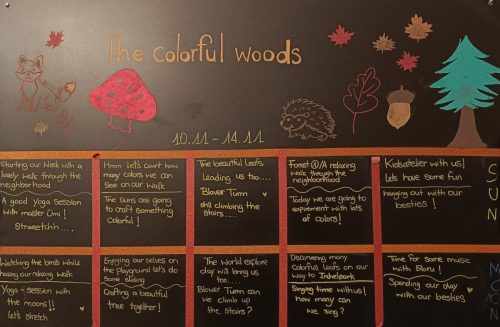 The colorful woods
10.11 - 14.11
Starting our Week with a
lovely walk through the
neighborhood
A good Yoga Session
with master Omi!
Streetchh....
Hmm Let's count how
many colors we can
see on our walk
The suns are going
to craft something
Colorful!
The beautiful leafs
Leading us too....
Blauer Turm
still climbing the
Stairs....
Forest A relaxing
walk through the
neighborhood
Today we are going to
expirement with lots
of colors!
Kidsatelier with us!
Lets have some fun
hanging out with our
besties!
SUN
Watching the birds while
having our relaxing walk
Yoga - Session
with the
moons!!
Let's stretch
Enjoying our selves on
the playground Let's do
some sliding
Crafting a beautiful
tree together!
The world explore
day will bring us
too....
Blauer Turm
Can we climb up
the stairs?
Discovering many
Colorfull leafs on our
way to
Singing time with us!
how many can
we sing?
Time for some music
with
Spending our day
with our besties
MOON